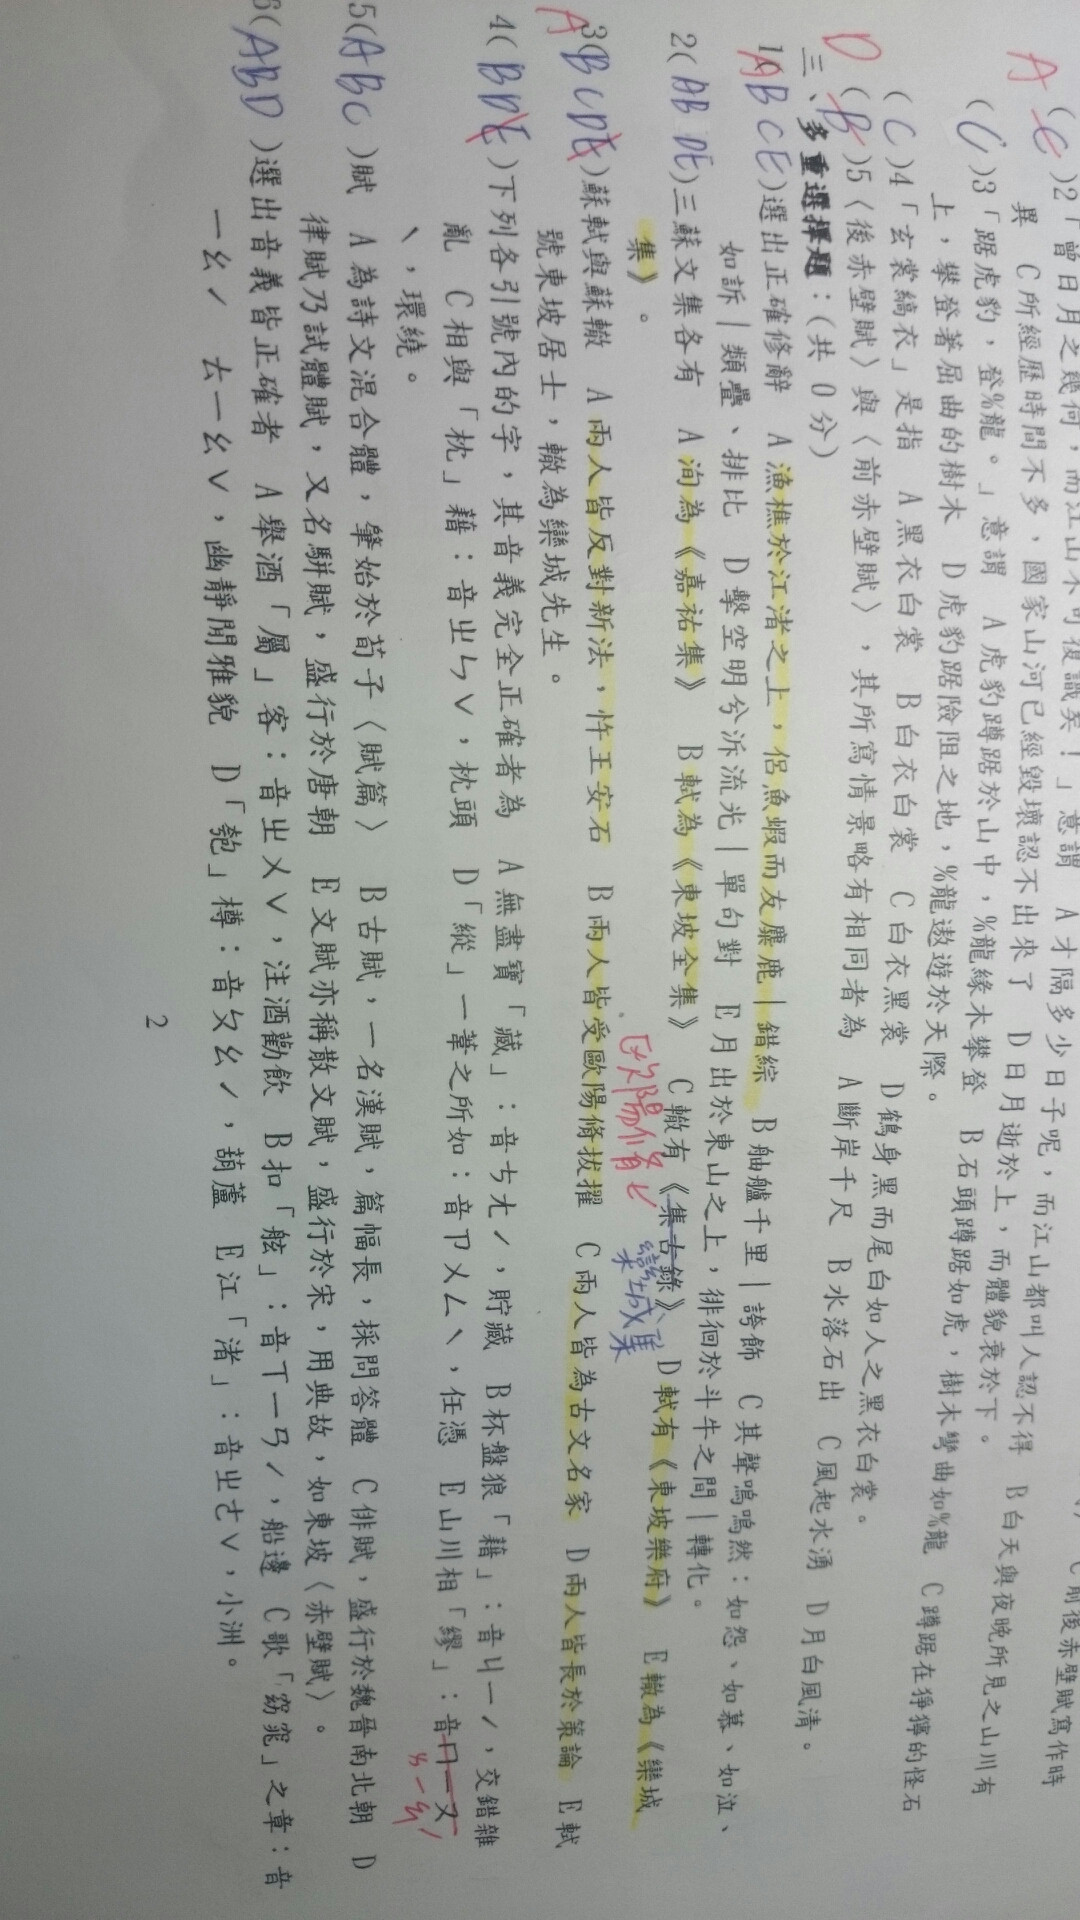 A
(C)2「曾日月之幾何,而江山不可復識矣!」意謂 A才隔多少日子呢,而江山都叫人認不得 B白天與夜晚所見之山川有
異 C所經歷時間不多,國家山河已經毀壞認不出來了 D日月逝於上,而體貌衰於下。
(C)3「踞虎豹,登%龍。」意謂 A虎豹蹲踞於山中,%龍緣木攀登 B石頭蹲踞如虎,樹木彎曲如%龍 C蹲踞在猙獰的怪石
上,攀登著屈曲的樹木 D虎豹踞險阻之地,%龍遨遊於天際。
(C)4「玄裳縞衣」是指 A黑衣白裳 B白衣白裳 C白衣黑裳 D鶴身黑而尾白如人之黑衣白裳。
D
(B)5〈後赤壁賦〉與〈前赤壁賦〉,其所寫情景略有相同者為 A斷岸千尺 B水落石出 C風起水湧 D月白風清。
三、多重選擇題:(共0分)
1(ABCE)選出正確修辭 A漁樵於江渚之上,侶魚蝦而友麋鹿|錯綜 B舳艫千里|誇飾 C其聲嗚嗚然:如怨、如慕、如泣、
如訴|類疊、排比 D擊空明兮泝流光|單句對 E月出於東山之上,徘徊於斗牛之間|轉化。
2(ABDE)三蘇文集各有 A洵為《嘉祐集》 B軾為《東坡全集》 C轍有《集古錄》 D軾有《東坡樂府》 E轍為《欒城
集》。
歐陽脩
欒城集
A
3(BCDE)蘇軾與蘇轍 A兩人皆反對新法,忤王安石 B兩人皆受歐陽脩拔擢 C兩人皆為古文名家 D兩人皆長於策論 E軾
號東坡居士,轍為欒城先生。
4(BDE)下列各引號內的字,其音義完全正確者為 A無盡寶「藏」:音ㄘㄤˊ,貯藏 B杯盤狼「藉」:音ㄐㄧˊ,交錯雜
亂 C相與「枕」藉:音ㄓㄣˇ,枕頭 D「縱」一葦之所如:音ㄗㄨㄥˋ,任憑 E山川相「繆」:音ㄇㄧㄡ
ˋ,環繞。
ㄌㄧㄠˊ
5(ABC)賦 A為詩文混合體,肇始於荀子〈賦篇〉 B古賦,一名漢賦,篇幅長,採問答體 C俳賦,盛行於魏晉南北朝 D
律賦乃試體賦,又名駢賦,盛行於唐朝 E文賦亦稱散文賦,盛行於宋,用典故,如東坡〈赤壁賦〉。
6(ABD)選出音義皆正確者 A舉酒「屬」客:音ㄓㄨˇ,注酒勸飲 B扣「舷」:音ㄒㄧㄢˊ,船邊 C歌「窈窕」之章:音
ㄧㄠˊ ㄊㄧㄠˇ,幽靜閒雅貌 D「匏」樽:音ㄆㄠˊ,葫蘆 E江「渚」:音ㄓㄜˇ,小洲。
2